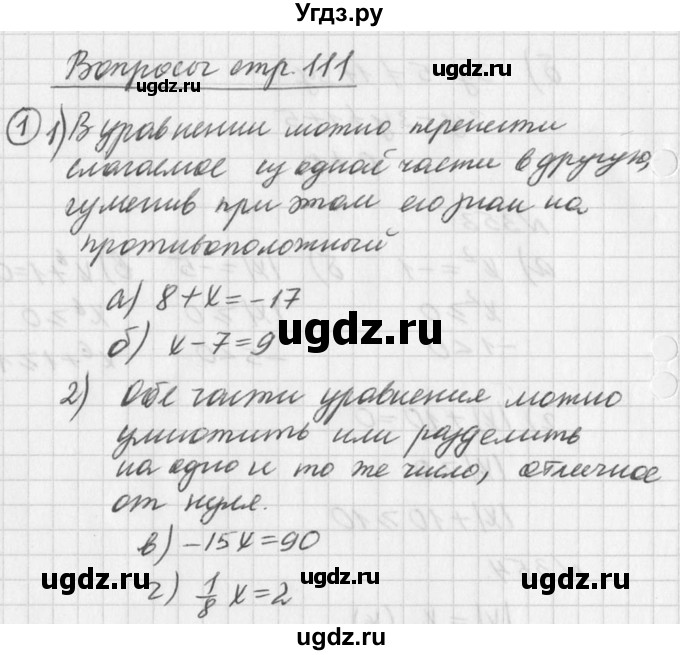 Угдз.ру
Вопросы стр. 111
ugdz.ru ugdz.ru
① 1) В уравнении можно перенести
слагаемое из одной части в другую,
изменив при этом его знак на
ugdz.ru ugdz.ru
противоположный
а) 8 + x = -17
ugdz.ru
б) x - 7 = 9
2) Обе части уравнения можно
умножить или разделить
ugdz.ru ugdz.ru
на одно и то же число, отличное
от нуля.
в) -15x = 90
ugdz.ru ugdz.ru
г) 1/8 x = 2
ugdz.ru